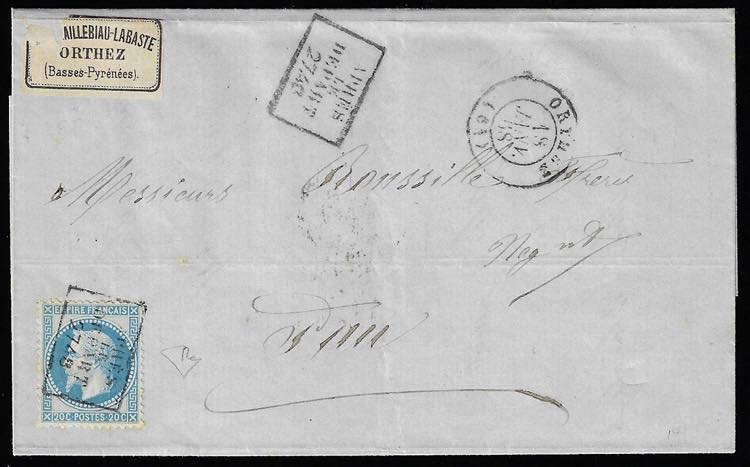 AILLEBIAU-LABASTE
ORTHEZ
(Basses-Pyrénées).
APRÈS
LE
DEPART
2740
ORTHEZ
18
JANV.
Messieurs Roussille Frères
Neg nts
Pau
EMPIRE FRANÇAIS
2740
20C-POSTES-20C